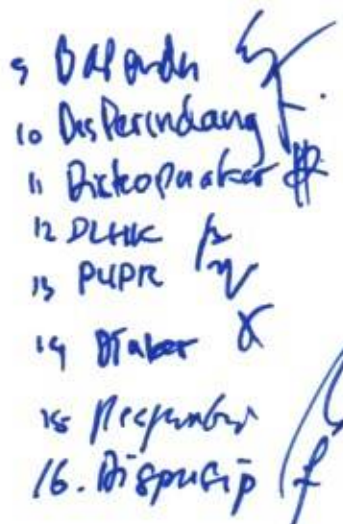 9 Bapenda
10 DisPerindang
11 Diskopnaker
12 DLHK
13 PUPR
14 Disaker
15
16. Dispusip